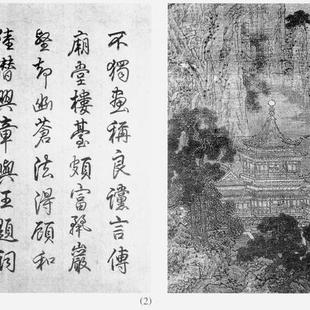 不獨畫稱良讜言傳
廟堂樓臺頗富麗巖
壑却幽蒼法得顧和
陸替興章與王題詞
(2)